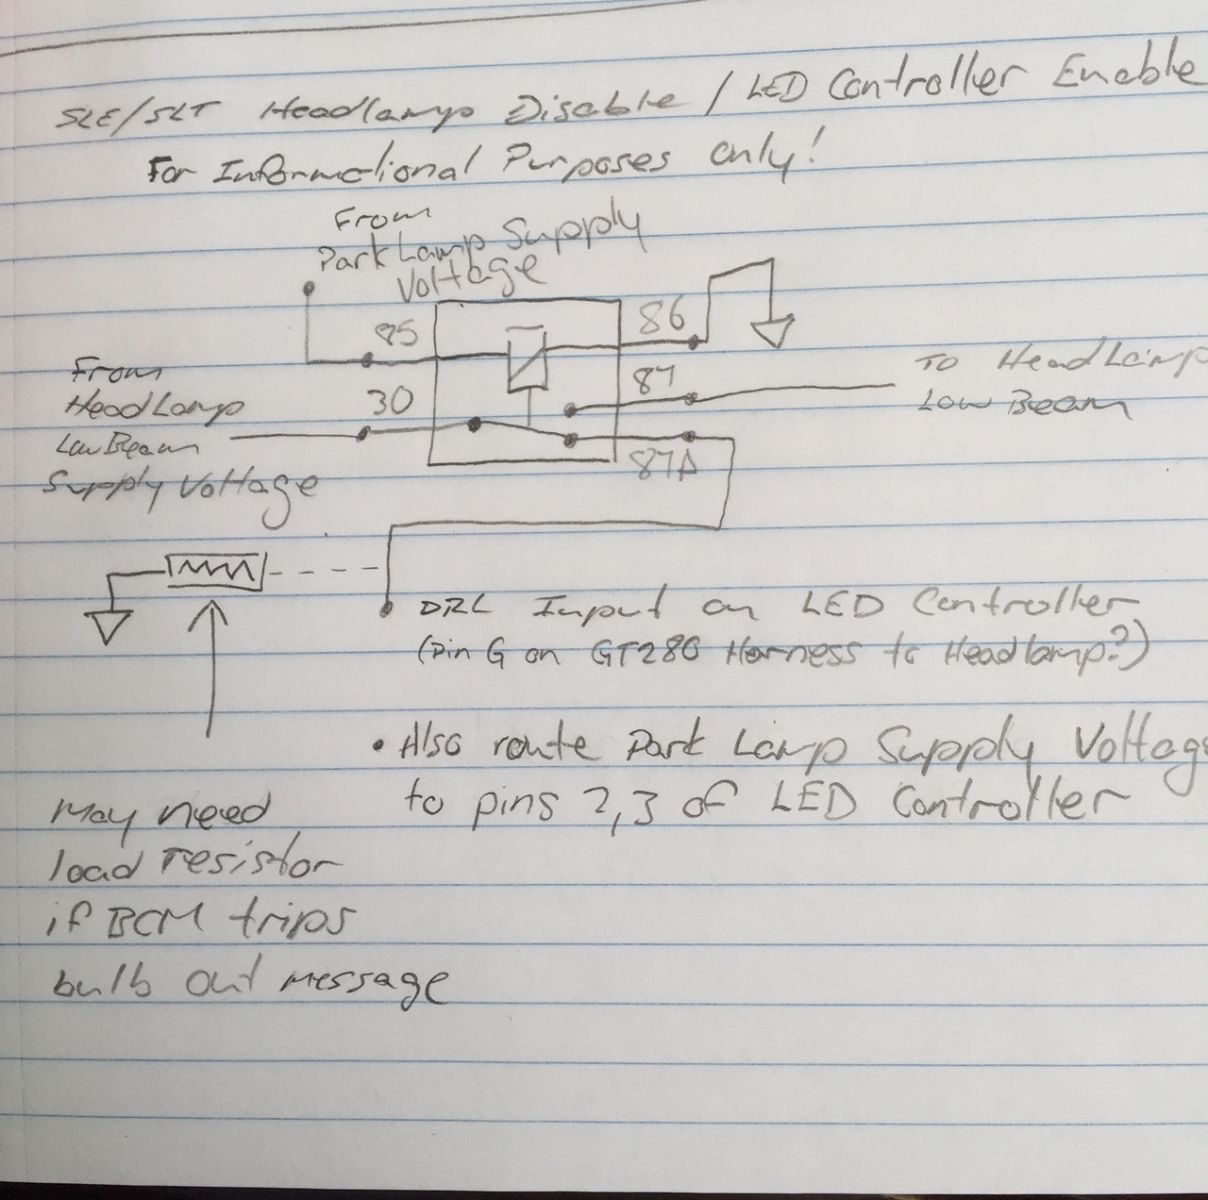 SLE/SLT Headlamp Disable / LED Controller Enable
For Informational Purposes only!
From
Park Lamp Supply
Voltage
85
86
From
HeadLamp
Low Beam
Supply Voltage
30
87
To HeadLamp
Low Beam
87A
DRL Input on LED Controller
(Pin G on GT286 Harness to Headlamp?)
• Also route Park Lamp Supply Voltage
to pins 2,3 of LED Controller
May need
load resistor
if BCM trips
bulb out message